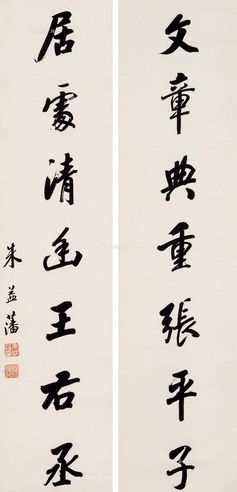 文章典重張平子
居處清幽王右丞
朱益藩